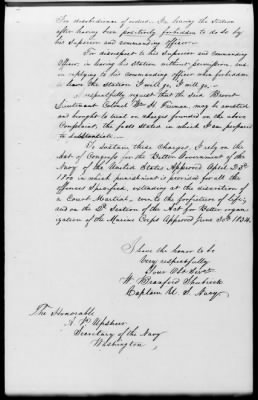 For disobedience of orders. In leaving the Station
after having been positively forbidden to do so by
his Superior and commanding officer.
For disrespect to his Superior and commanding
Officer in leaving his Station without permission, and
in replying to his commanding officer when forbidden
to leave the Station I will go, I will go.
I respectfully request that the said Brevet
Lieutenant Colonel Wm H. Freeman, may be arrested
and brought to trial on charges founded on the above
Complaint, the facts stated in which I am prepared
to substantiate.
To sustain these Charges, I rely on the
Act of Congress for the Better Government of the
Navy of the United States Approved April 23d
1800 in which punishment is provided for all the
offences Specified, extending at the discretion of
a Court Martial, even to the forfeiture of Life;
and on the 2d Section of the Act for Better organ-
ization of the Marine Corps Approved June 30th 1834.
I have the honor to be
Very respectfully
Your Obt. Servt.
W. Branford Shubrick
Captain U.S. Navy
The Honorable
A. P. Upshur
Secretary of the Navy
Washington